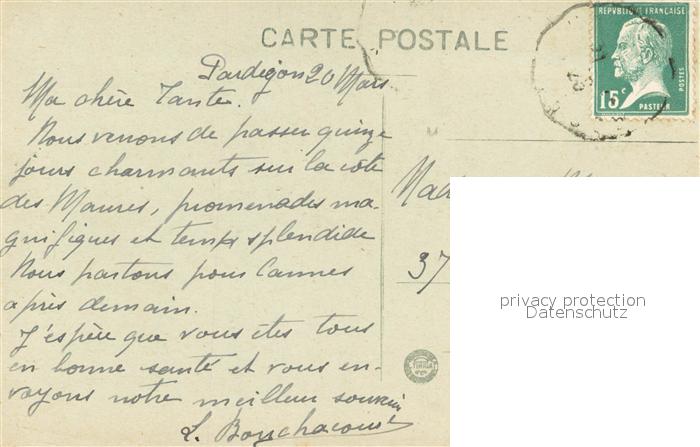 CARTE POSTALE
RÉPUBLIQUE FRANÇAISE
POSTES
15c
PASTEUR
Pardigon 20 Mars
Ma chère Tante.
Nous venons de passer quinze
jours charmants sur la côte
des Maures, promenades ma-
gnifiques et temps splendide
Nous partons pour Cannes
après demain.
J'espère que vous êtes tous
en bonne santé et vous en-
voyons notre meilleur souvenir
L.
37
privacy protection
Datenschutz